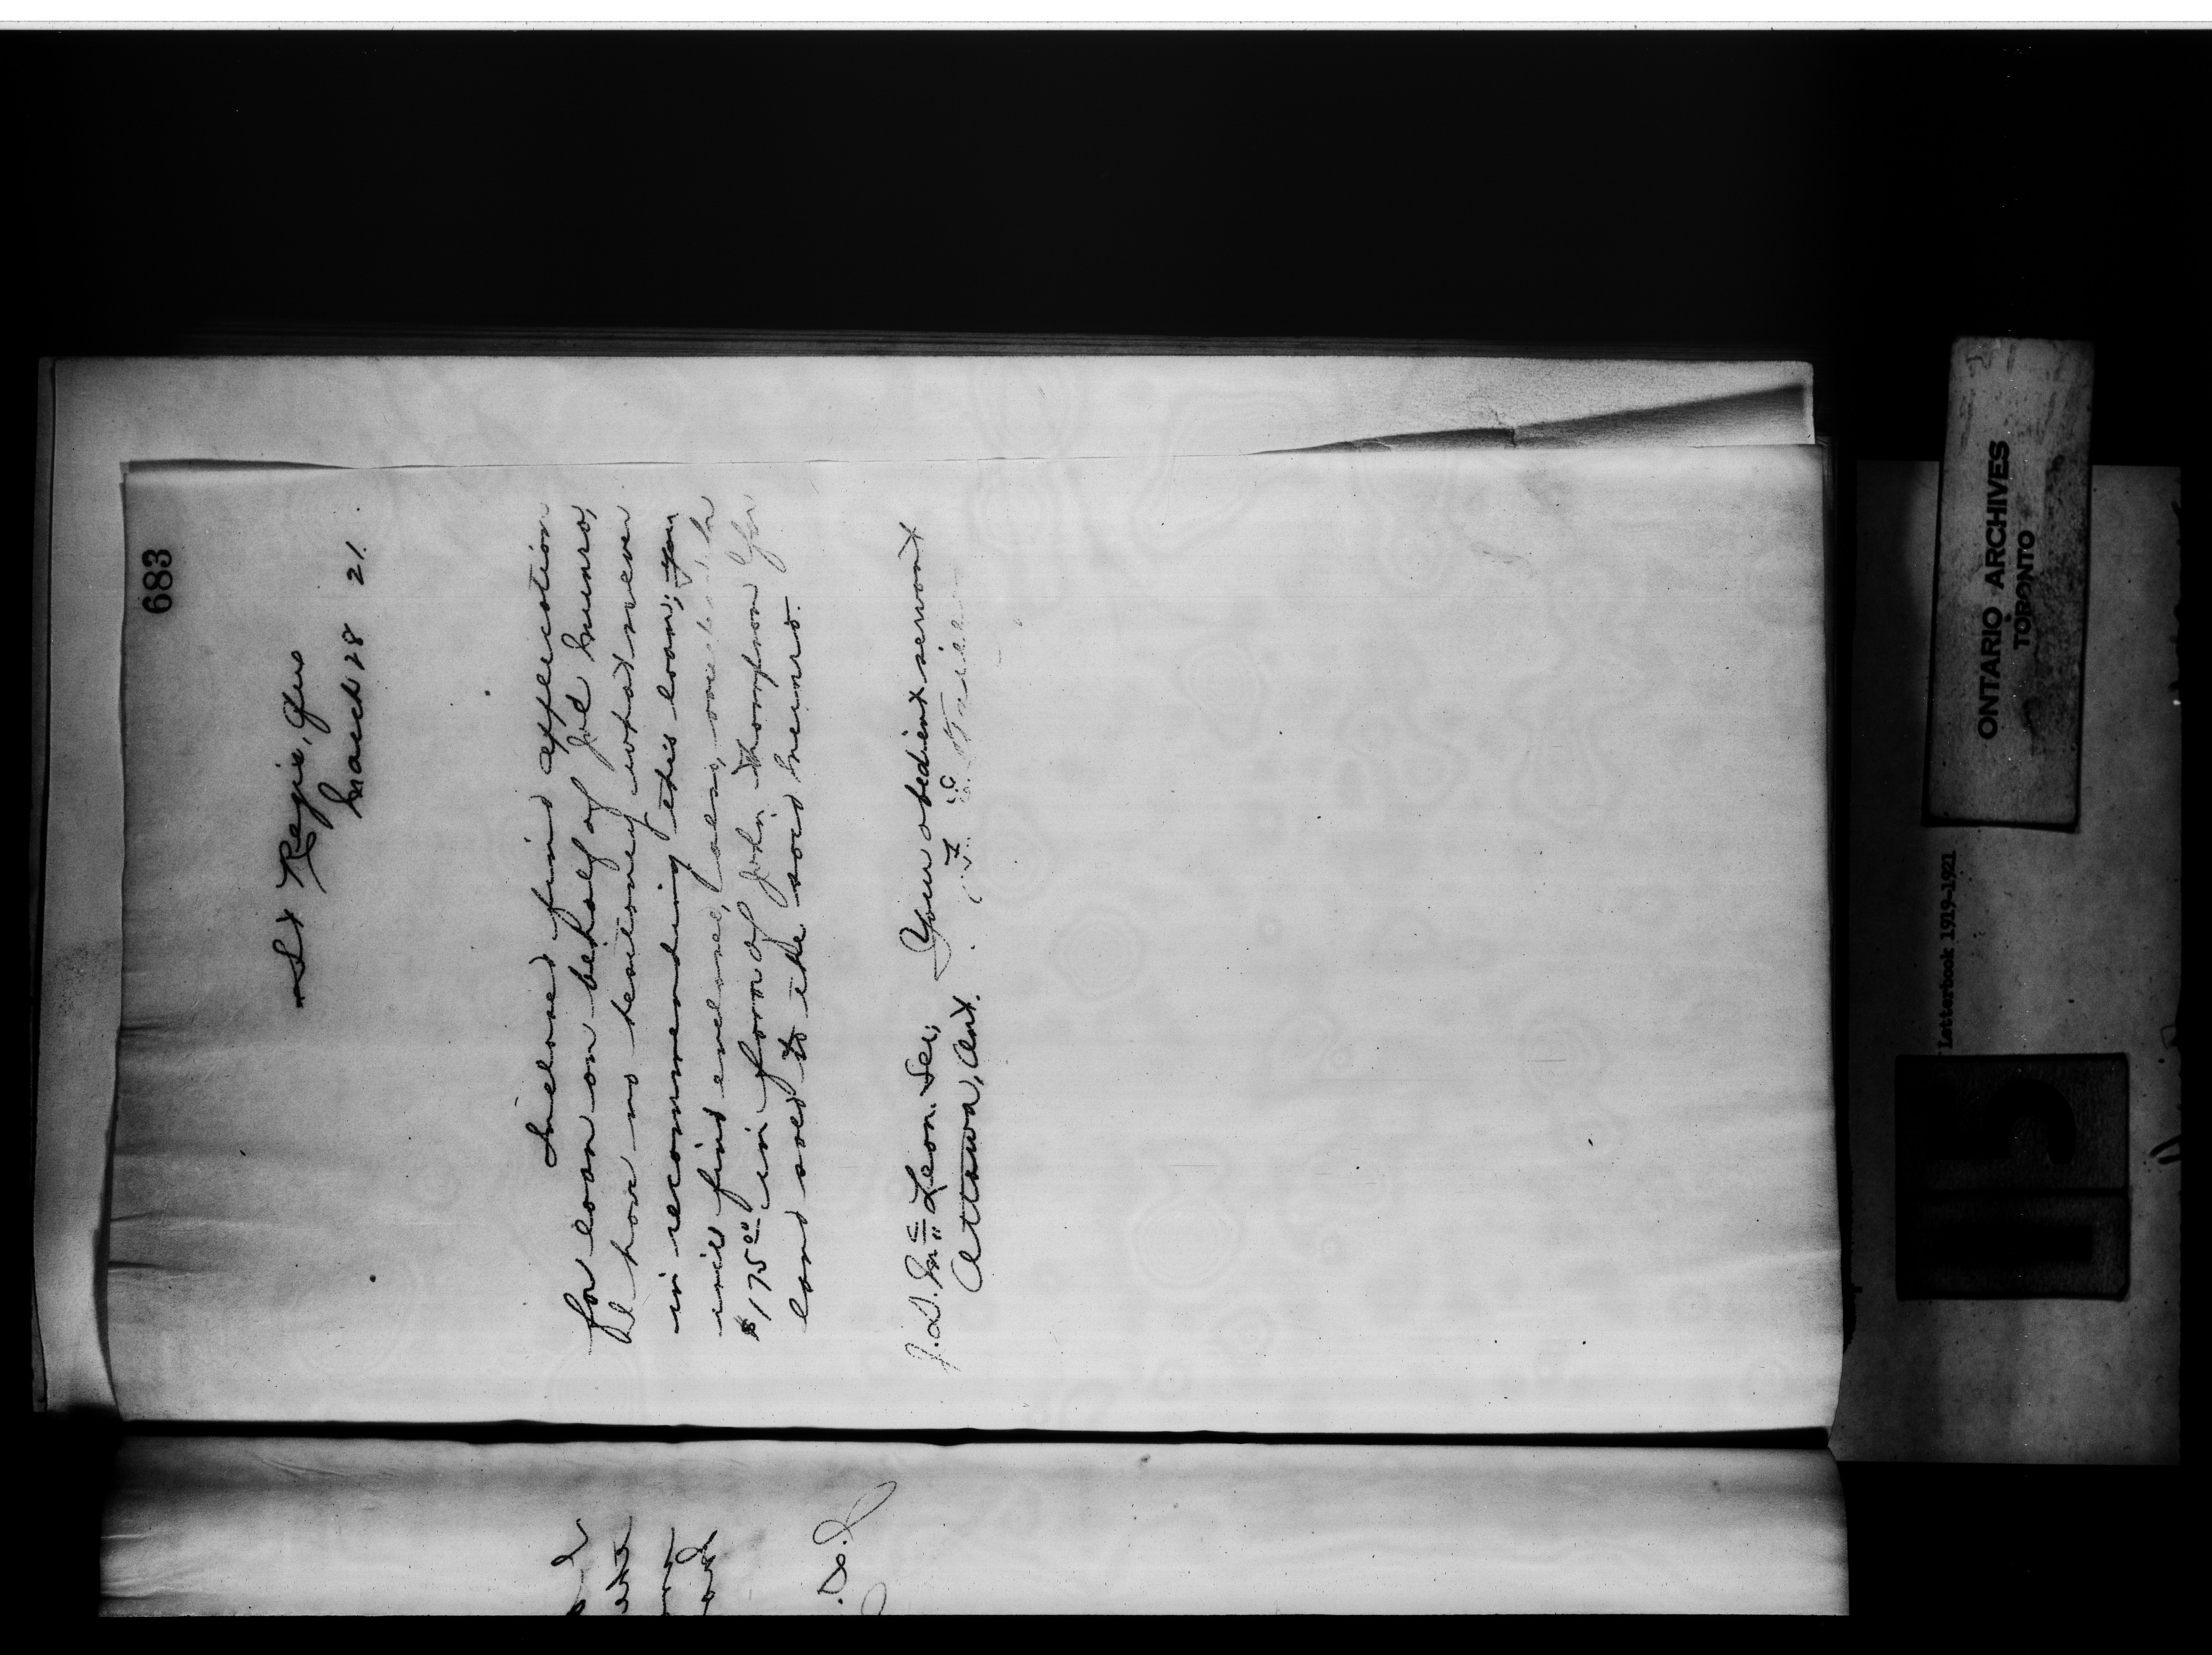 683
St Regis, Que
March 28 21.
Inclosed find application
for loan on behalf of Joe Munro,
I have no hesitency whatsoever
in recommending this loan; you
will find enclosed, also, one
$175.00 in favor of John Thompson for
land sold to the said Munro.
Your obedient servant
J.D. McLean. Sec;
Ottawa, Ont.
ONTARIO ARCHIVES
TORONTO
Letterbook 1919-1921